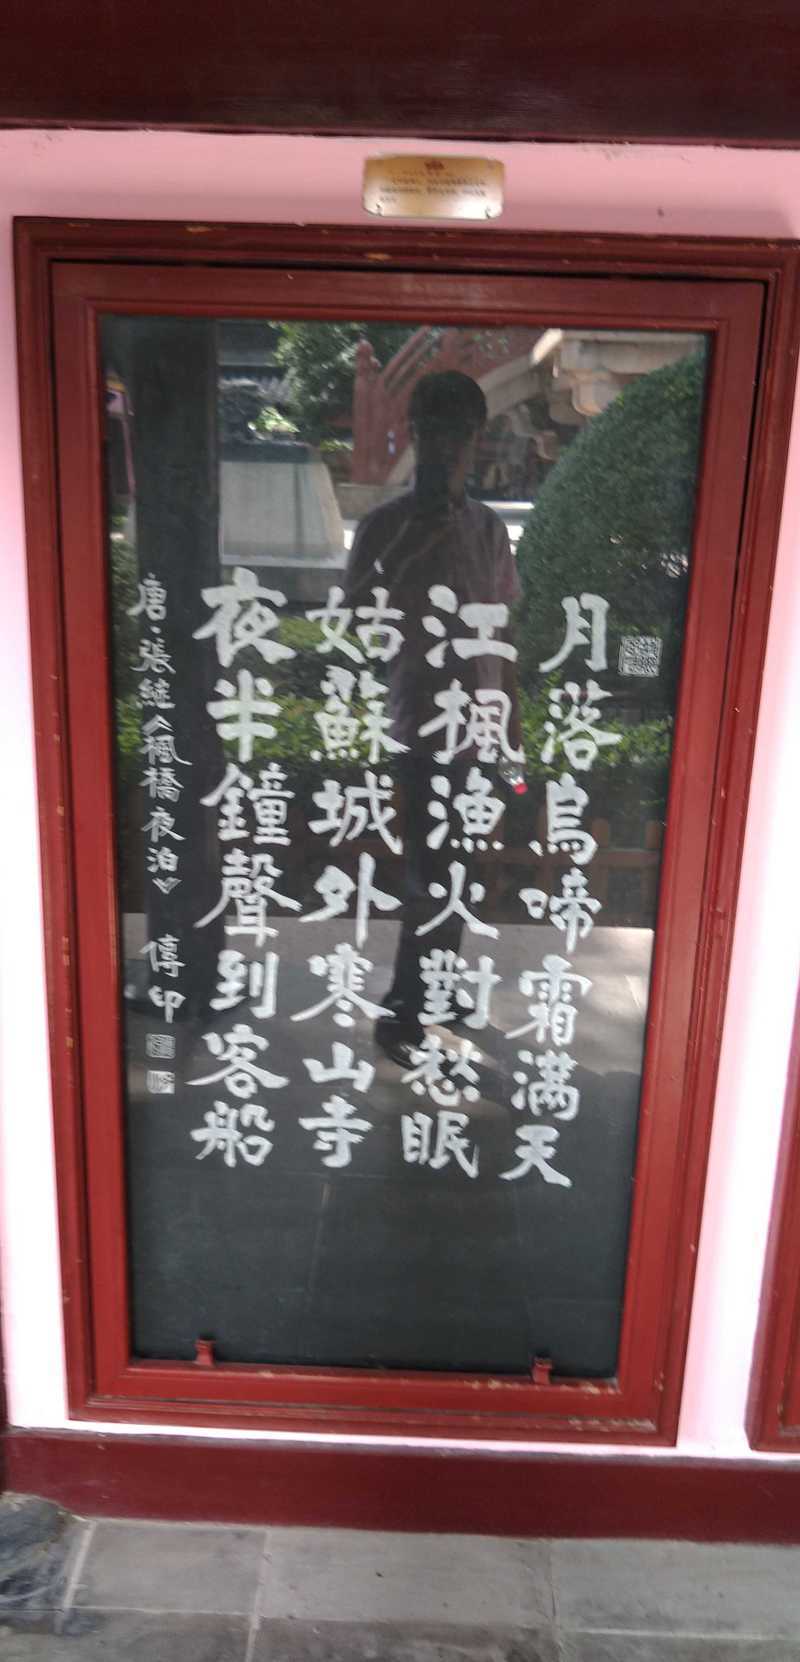 月落烏啼霜滿天
江楓漁火對愁眠
姑蘇城外寒山寺
夜半鐘聲到客船
唐·張継《楓橋夜泊》 傳印